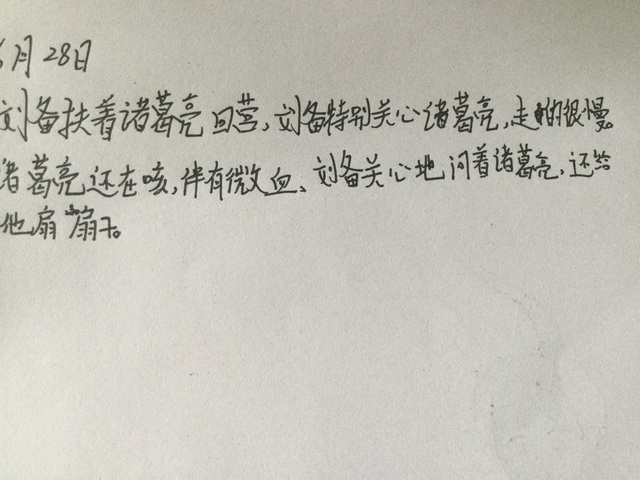 6月28日
刘备扶着诸葛亮回营,刘备特别关心诸葛亮,走的很慢。
诸葛亮还在咳,伴有微血、刘备关心地问着诸葛亮,还给
他扇扇子。